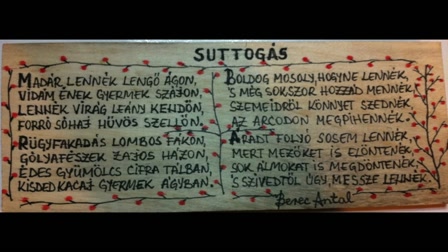 SUTTOGÁS
MADÁR LENNÉK LENGŐ ÁGON,
VIDÁM ÉNEK GYERMEK SZÁJON,
LENNÉK VIRÁG LEÁNY KENDŐN,
FORRÓ SÓHAJ HŰVÖS SZELLŐN.
RÜGYFAKADÁS LOMBOS FÁKON,
GÓLYAFÉSZEK ZAJOS HÁZON,
ÉDES GYÜMÖLCS CIFRA TÁLBAN,
KISDED KACAJ GYERMEK ÁGYBAN.
BOLDOG MOSOLY, HOGYNE LENNÉK,
'S MÉG SOKSZOR HOZZÁD MENNÉK
SZEMEIDRŐL KÖNNYET SZEDNÉK
AZ ARCODON MEGPIHENNÉK.
ÁRADT FOLYÓ SOSEM LENNÉK,
MERT MEZŐKET IS ELÖNTENÉK,
SOK ÁLMOKAT IS MEGDÖNTENÉK,
'S SZIVEDTŐL ÚGY, MESSZE LENNÉK.
Berec Antal